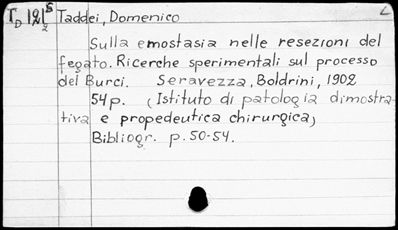 Taddei, Domenico
Sulla emostasia nelle resezioni del
fegato. Ricerche sperimentali sul processo
del Burci. Seravezza, Boldrini, 1902
54 p. (Istituto di patologia dimostra-
tiva e propedeutica chirurgica)
Bibliogr. p. 50-54.